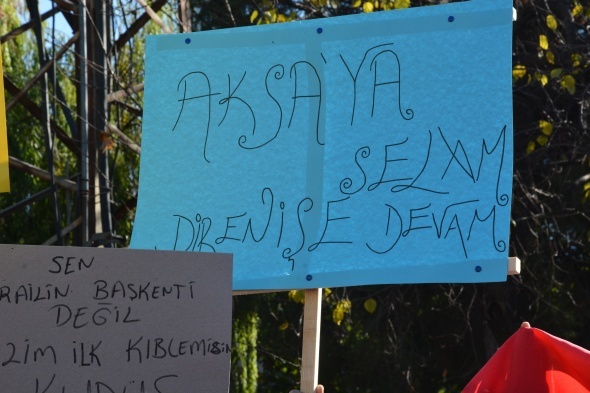 AKSA'YA
SELAM
DİRENİŞE DEVAM
SEN
RAİLİN BAŞKENTİ
DEĞİL
ZİM İLK KIBLEMİSİN
KUDÜS